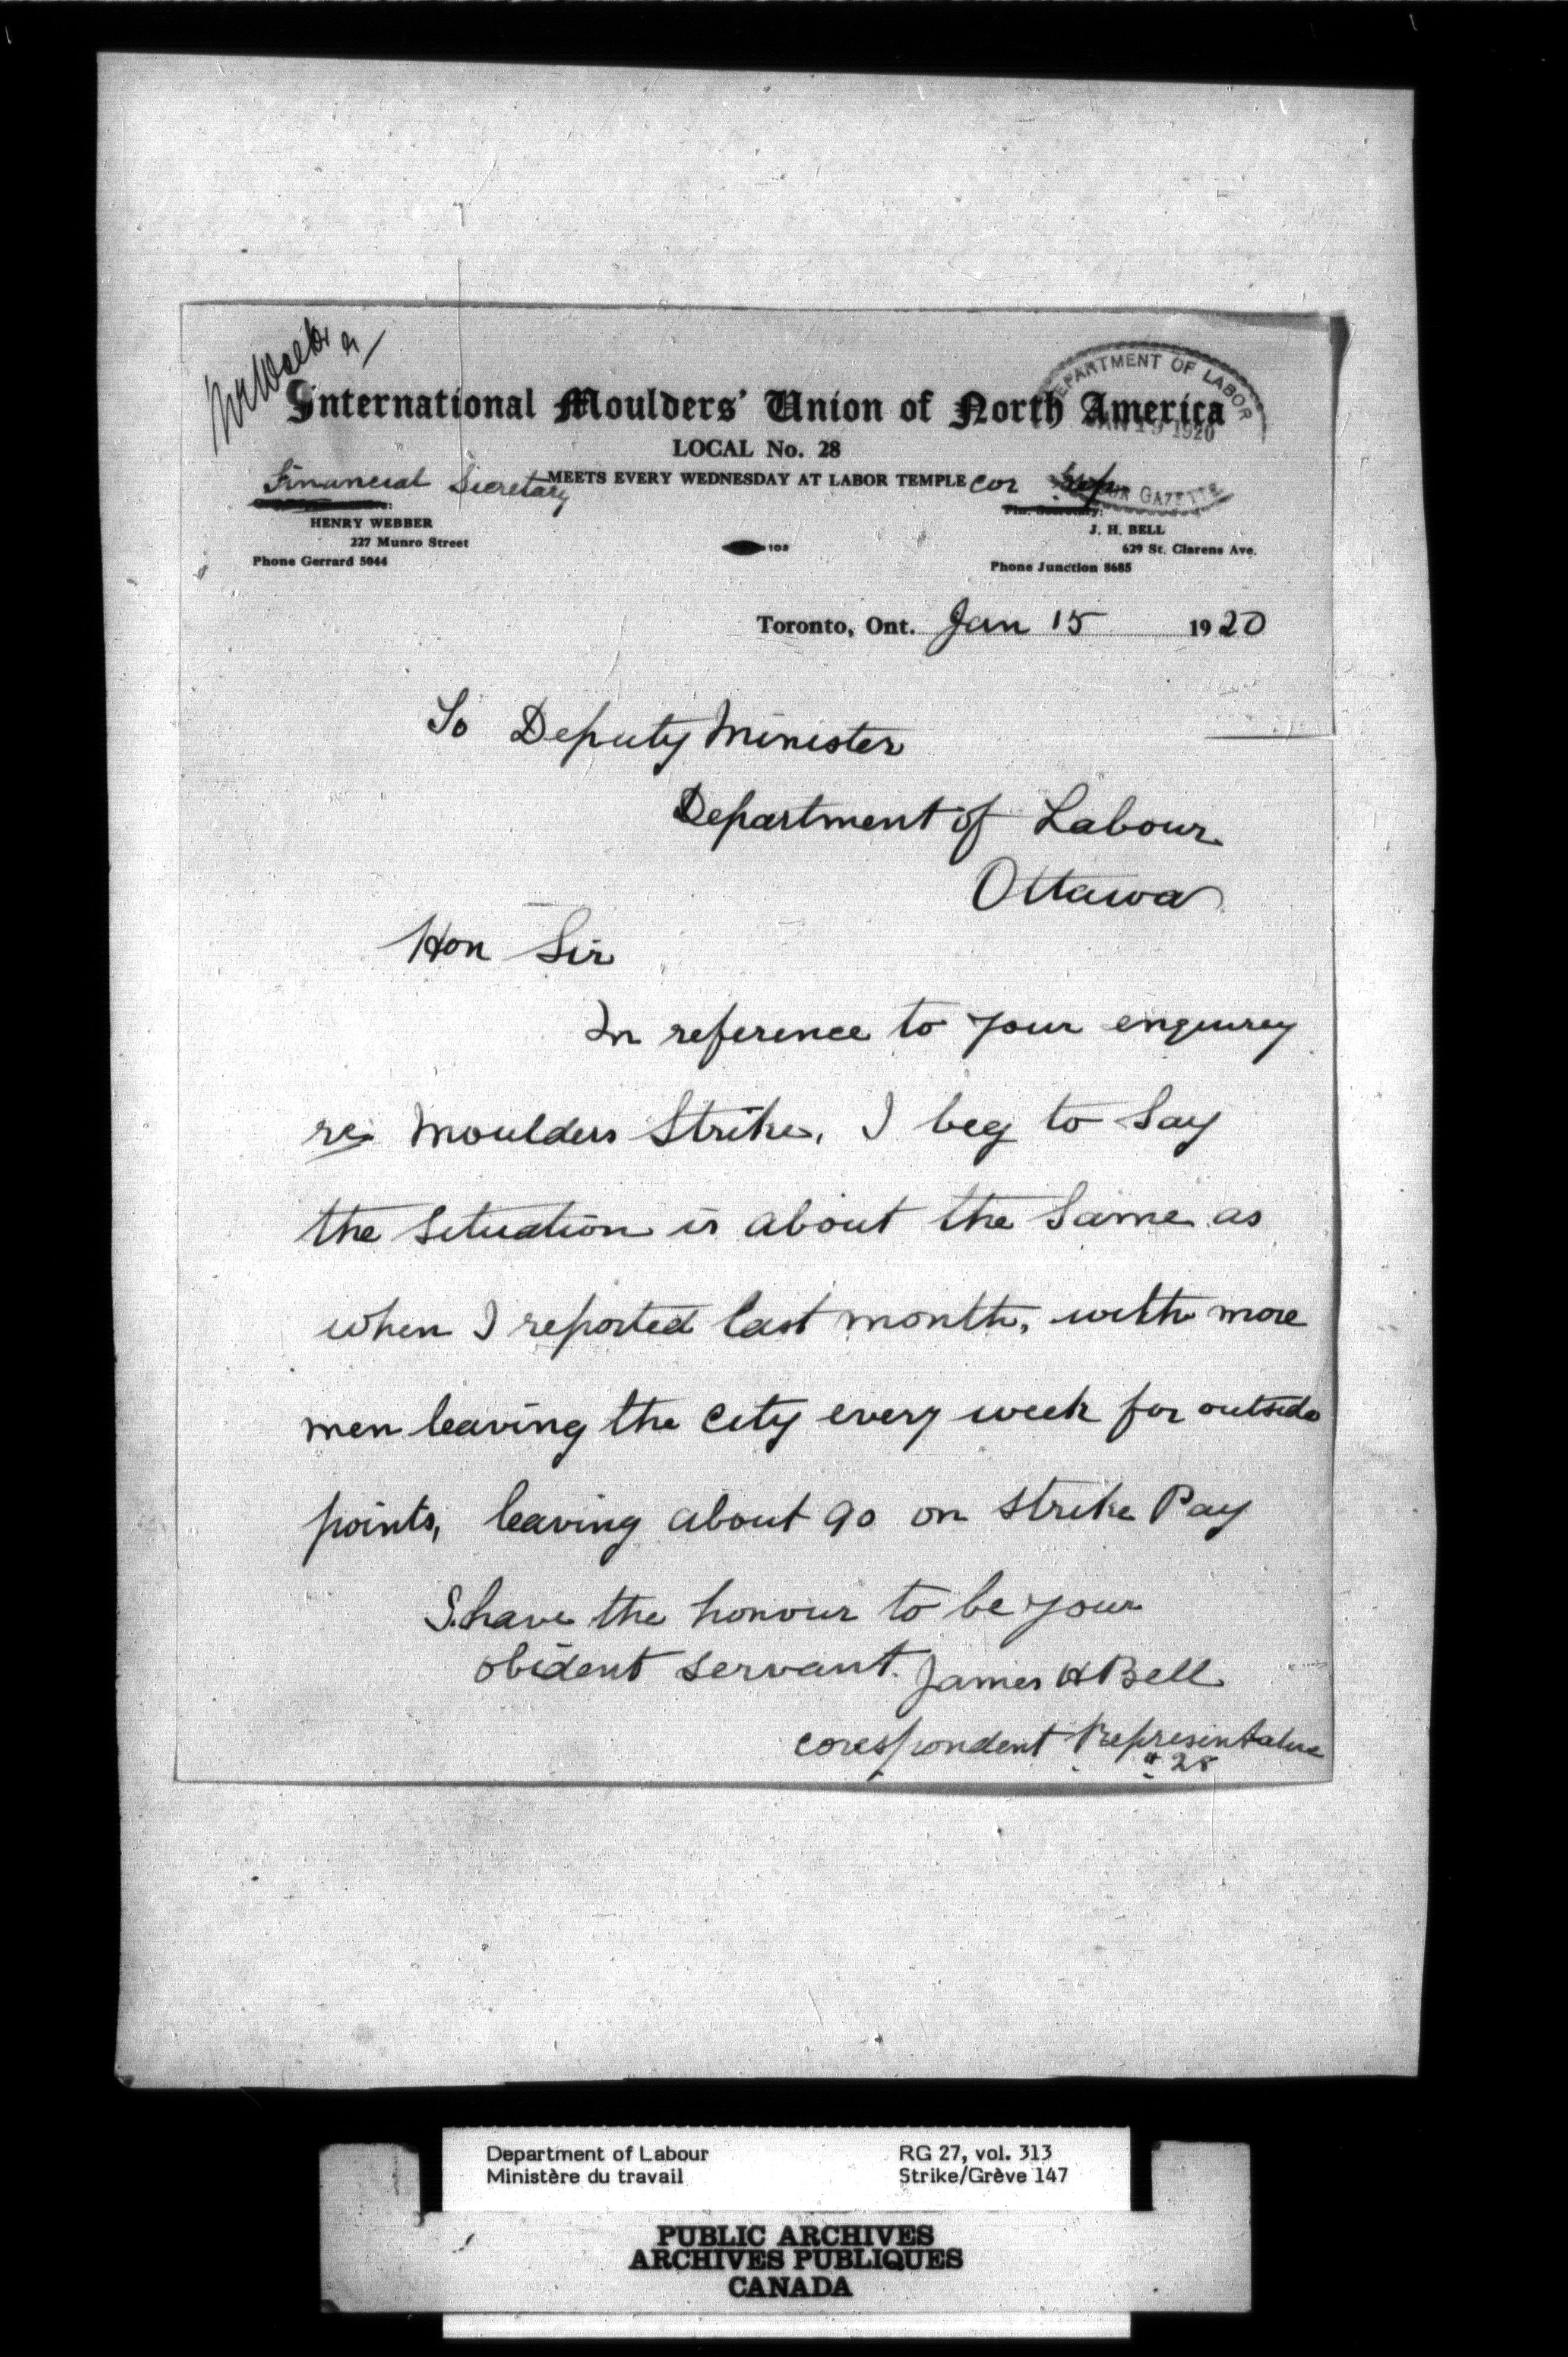 DEPARTMENT OF LABOR
JAN 19 1920
GAZETTE
International Moulders' Union of North America
LOCAL No. 28
MEETS EVERY WEDNESDAY AT LABOR TEMPLE
Financial Secretary
cor
HENRY WEBBER
227 Munro Street
Phone Gerrard 5044
103
J. H. BELL
629 St. Clarens Ave.
Phone Junction 8685
Toronto, Ont. Jan 15 1920
To Deputy Minister
Department of Labour
Ottawa
Hon Sir
In reference to your enquirey
re Moulders Strike, I beg to Say
the Situation is about the Same as
when I reported last month, with more
men leaving the City every week for outside
points, leaving about 90 on strike Pay
I have the honour to be your
obident servant. James H Bell
corespondent Representative
# 28
Department of Labour
Ministère du travail
RG 27, vol. 313
Strike/Grève 147
PUBLIC ARCHIVES
ARCHIVES PUBLIQUES
CANADA